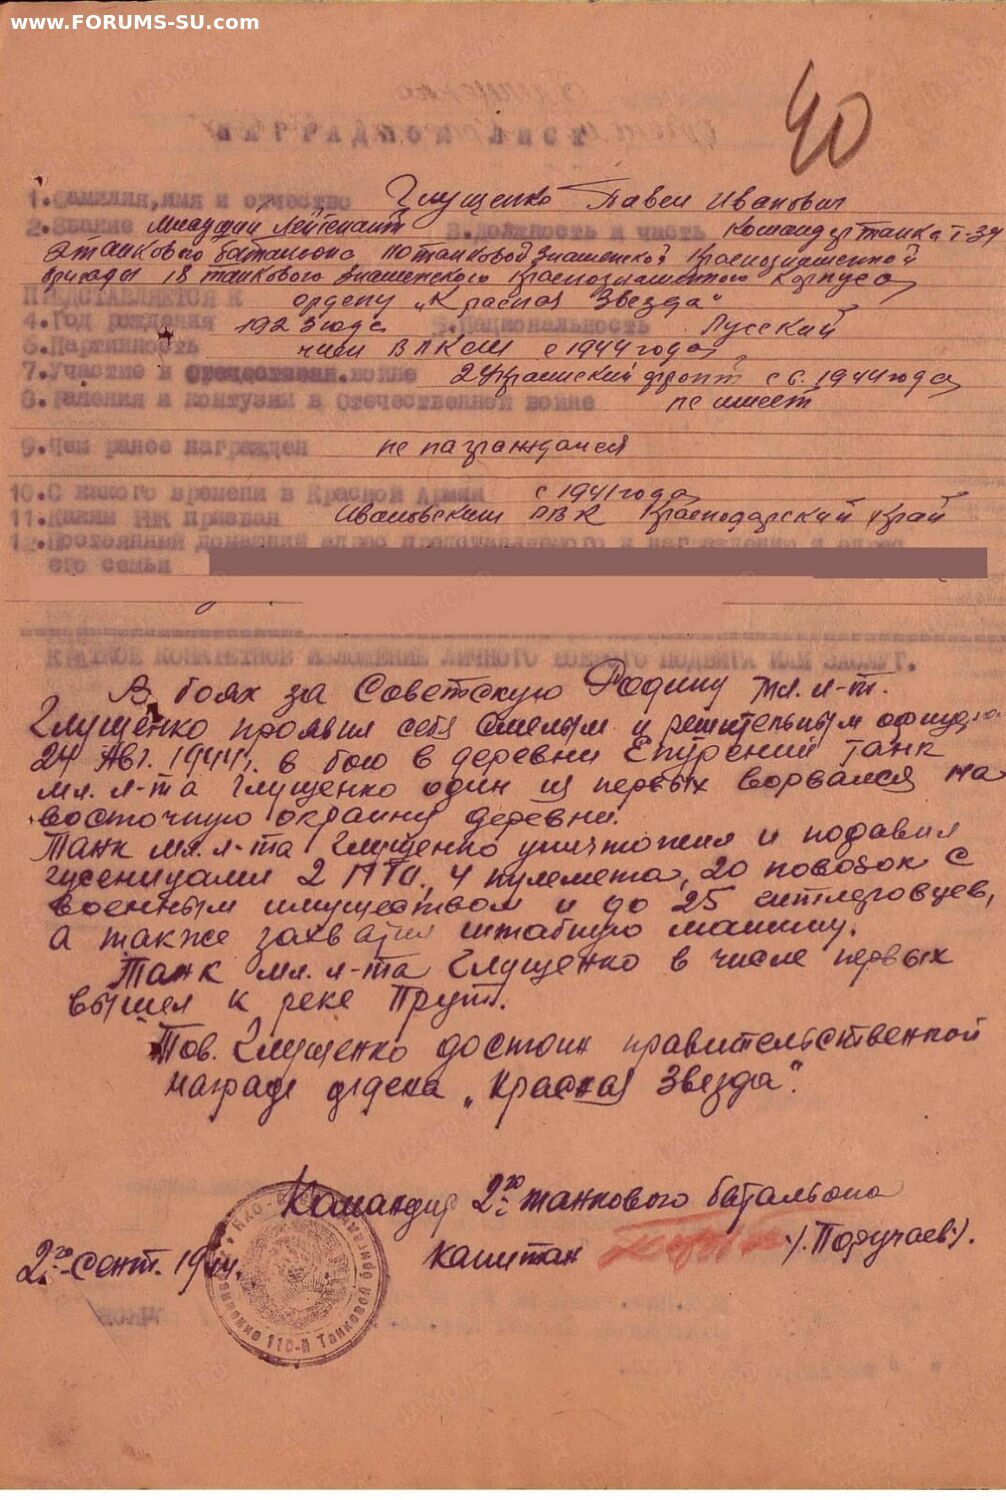 www.FORUMS-SU.com
40
НАГРАДНОЙ ЛИСТ
1.Фамилия,имя и отчество Глущенко Павел Иванович
2.Звание Младший Лейтенант 3.Должность и часть Командир танка Т-34
2 танкового батальона 110 танковой Знаменской Краснознаменной
бригады 18 танкового Знаменского Краснознаменного Корпуса
ПРЕДСТАВЛЯЕТСЯ К ордену „Красная Звезда"
4.Год рождения 1923 года 5.Национальность Русский
6.Партийность член ВЛКСМ с 1944 года
7.Участие в отечествен.войне 2 Украинский фронт с 6. 1944 года
8.Ранения и контузии в Отечественной войне не имеет
9.Чем ранее награжден не награждался
10.С какого времени в Красной Армии с 1941 года
11.Каким РВК призван Ивановским РВК Краснодарский край
12.Постоянный домашний адрес представляемого к награждению и адрес
его семьи
КРАТКОЕ КОНКРЕТНОЕ ИЗЛОЖЕНИЕ ЛИЧНОГО БОЕВОГО ПОДВИГА ИЛИ ЗАСЛУГ.
В боях за Советскую Родину мл. л-т.
Глущенко проявил себя смелым и решительным офицер
24 Авг. 1944г. в бою в деревни Епурений танк
мл. л-та Глущенко один из первых ворвался на
восточную окраину деревни.
Танк мл. л-та Глущенко уничтожил и подавил
гусеницами 2 ПТО, 4 пулемета, 20 повозок с
военным имуществом и до 25 гитлеровцев,
а также захватил штабную машину.
Танк мл. л-та Глущенко в числе первых
вышел к реке Прут.
Тов. Глущенко достоин правительственной
награде ордена „Красная Звезда".
Командир 2го танкового батальона
2го сент. 1944г. капитан /.Поручаев./.
Управление 110-й Танковой бригады